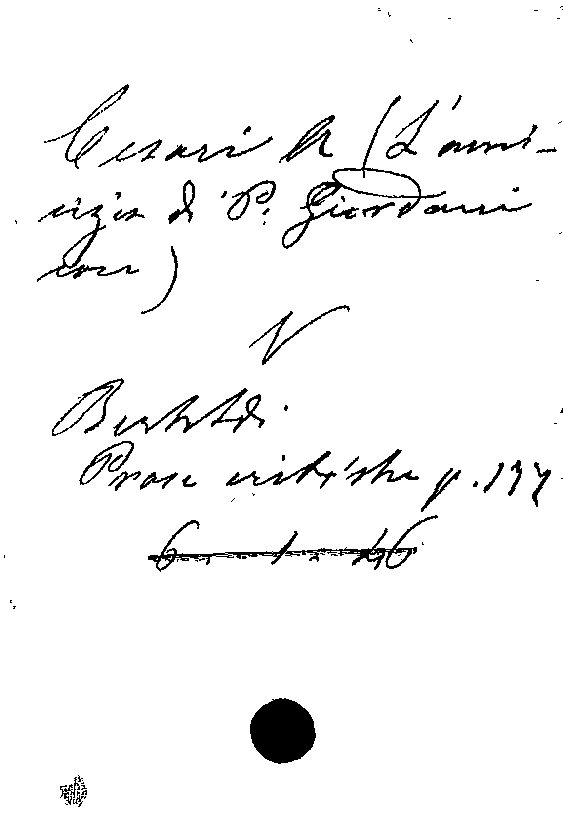 Cesari A (L'ami-
cizia di P. Giordani
con)
V
Bertoldi.
Prose critiche p. 197
6. 1. 46